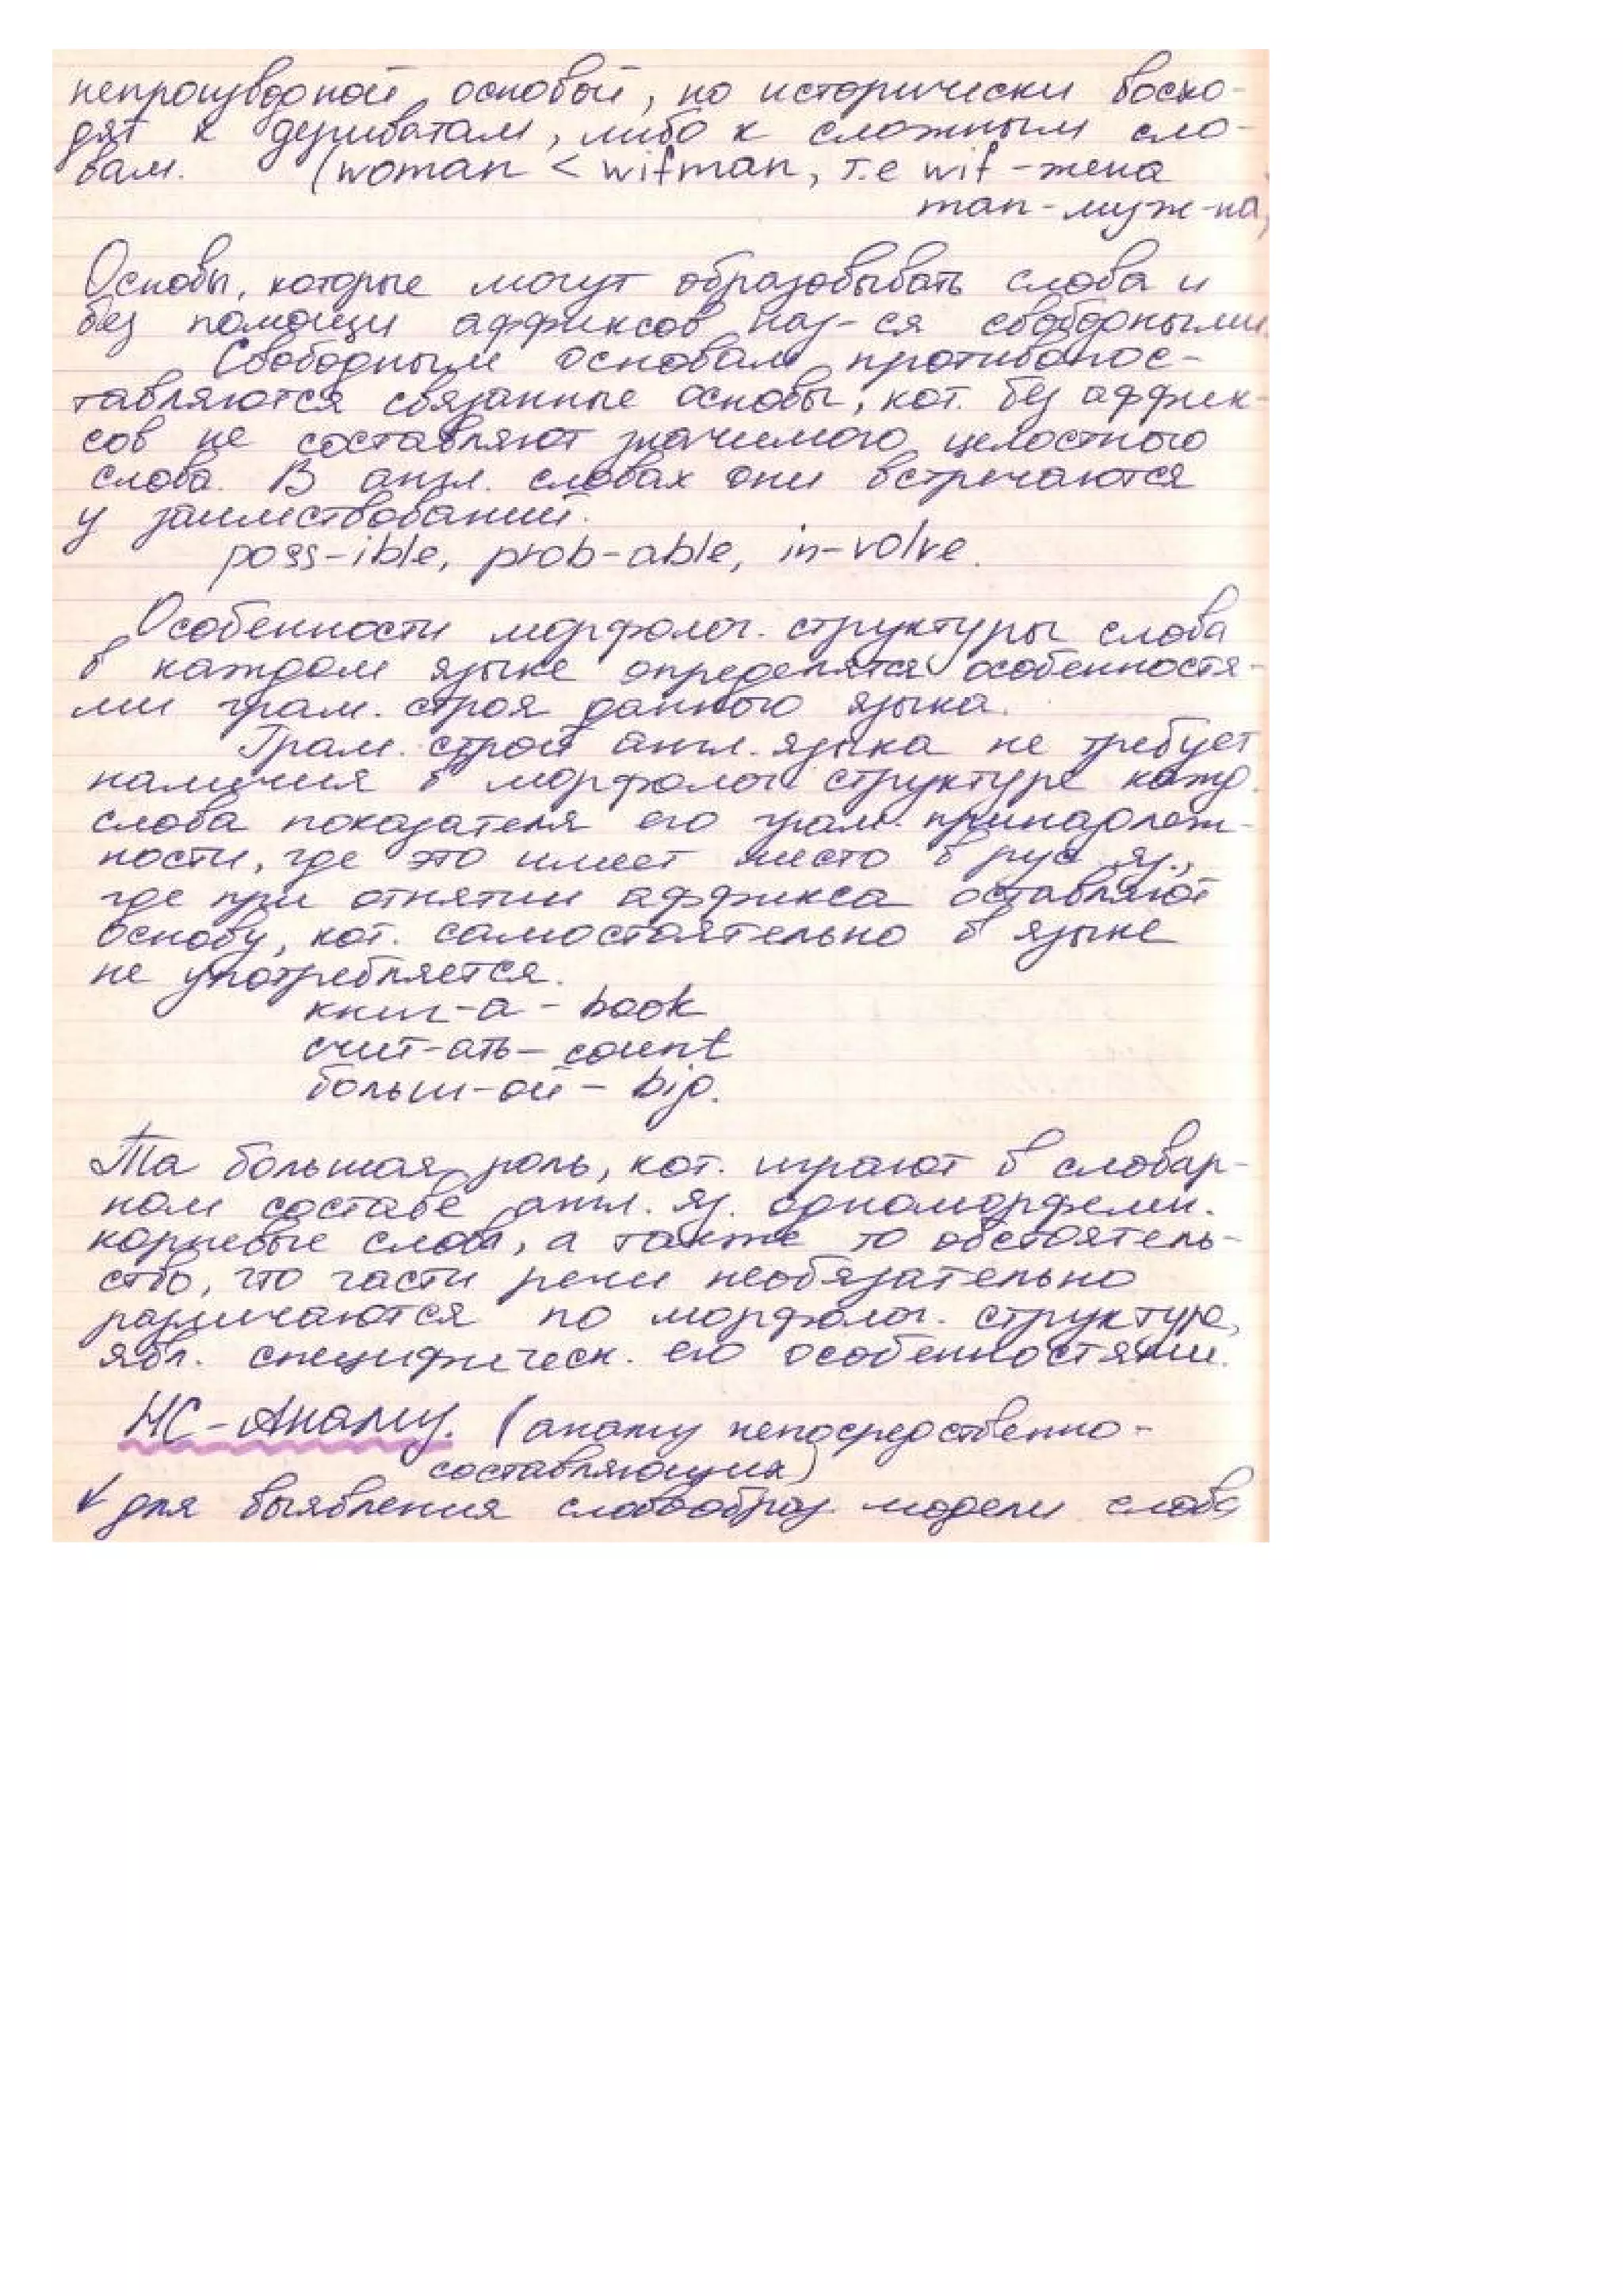 непроизводной основой, но исторически восхо-
дят к дериватам, либо к сложным сло-
вам. (woman < wifman, т.е wif - жена
man - муж-на,
Основы, которые могут образовывать слова и
без помощи аффиксов наз-ся свободными.
Свободным основам противопос-
тавляются связанные основы, кот. без аффик-
сов не составляют значимого целостного
слова. В англ. словах они встречаются
у заимствований.
poss-ible, prob-able, in-volve.
Особенности морфолог. структуры слова
в каждом языке определятся особенностя-
ми грам. строя данного языка.
Грам. строй англ. языка не требует
наличия в морфолог. структуре кажд.
слова показателя его грам. принадлеж-
ности, где это имеет место в рус. яз.,
где при отнятии аффикса оставляют
основу, кот. самостоятельно в языке
не употребляется.
книг-а - book
счит-ать - count
больш-ой - big.
Та большая роль, кот. играют в словар-
ном составе англ. яз. одноморфемн.
корневые слова, а также то обстоятель-
ство, что части речи необязательно
различаются по морфолог. структуре,
явл. специфическ. его особенностями.
НС-Анализ. (анализ непосредственно-
составляющих)
для выявления словообраз. модели слова